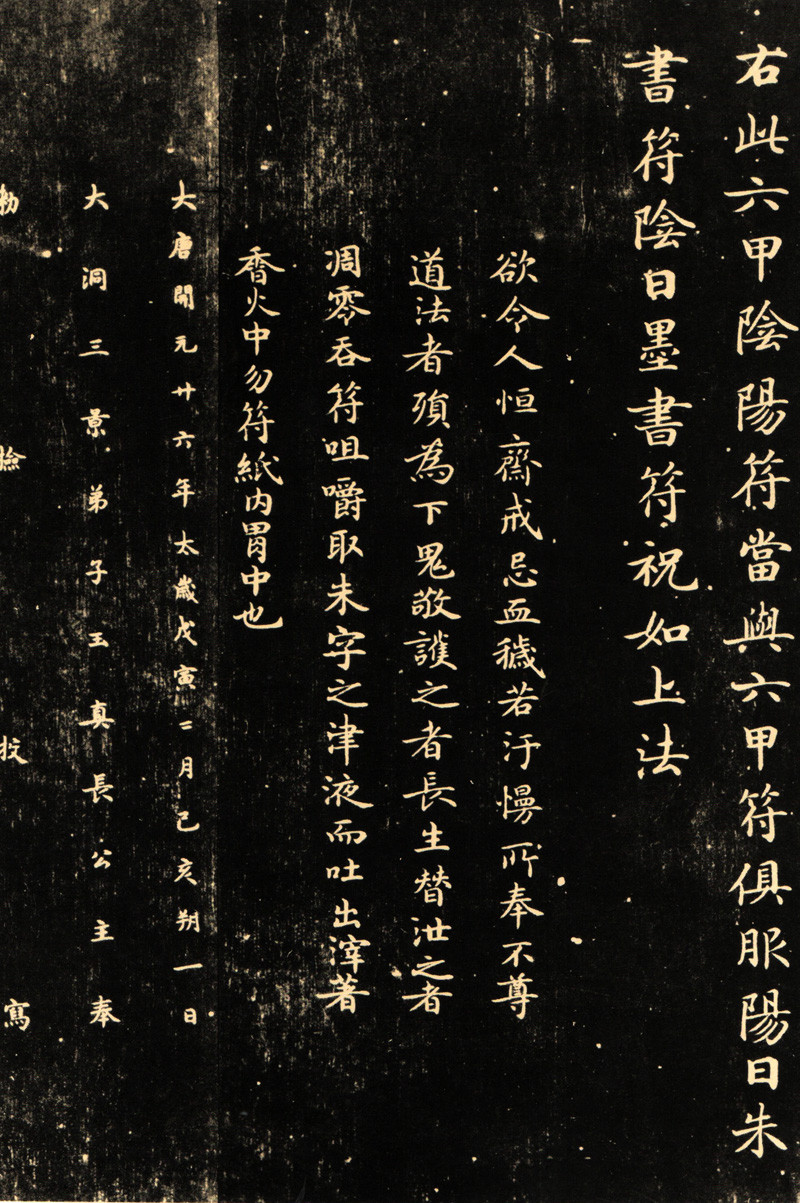 右此六甲陰陽符當與六甲符俱服陽日朱
書符陰日墨書符祝如上法
欲令人恒齋戒忌血穢若汙慢所奉不尊
道法者殞為下鬼敬護之者長生替泄之者
凋零吞符咀嚼取朱字之津液而吐出滓著
香火中勿符紙內胃中也
大唐開元廿六年太歲戊寅二月己亥朔一日
大洞三景弟子玉真長公主奉
勑撿挍寫